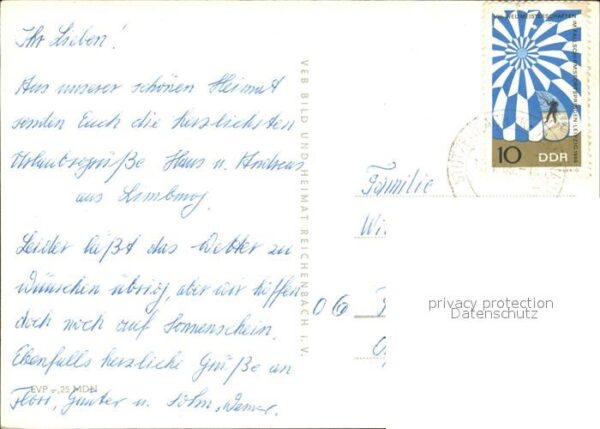 Ihr Lieben!
Aus unserer schönen Heimat
senden Euch die herzlichsten
Urlaubsgrüße Hans u. Andreas
aus
Leider läßt das Wetter zu
wünschen übrig, aber wir hoffen
doch noch auf Sonnenschein.
Ebenfalls herzliche Grüße an
Günter u. Sohn,
EVP -,25 MDN
VEB BILD UND HEIMAT REICHENBACH I. V.
10 DDR
Familie
06
privacy protection
Datenschutz